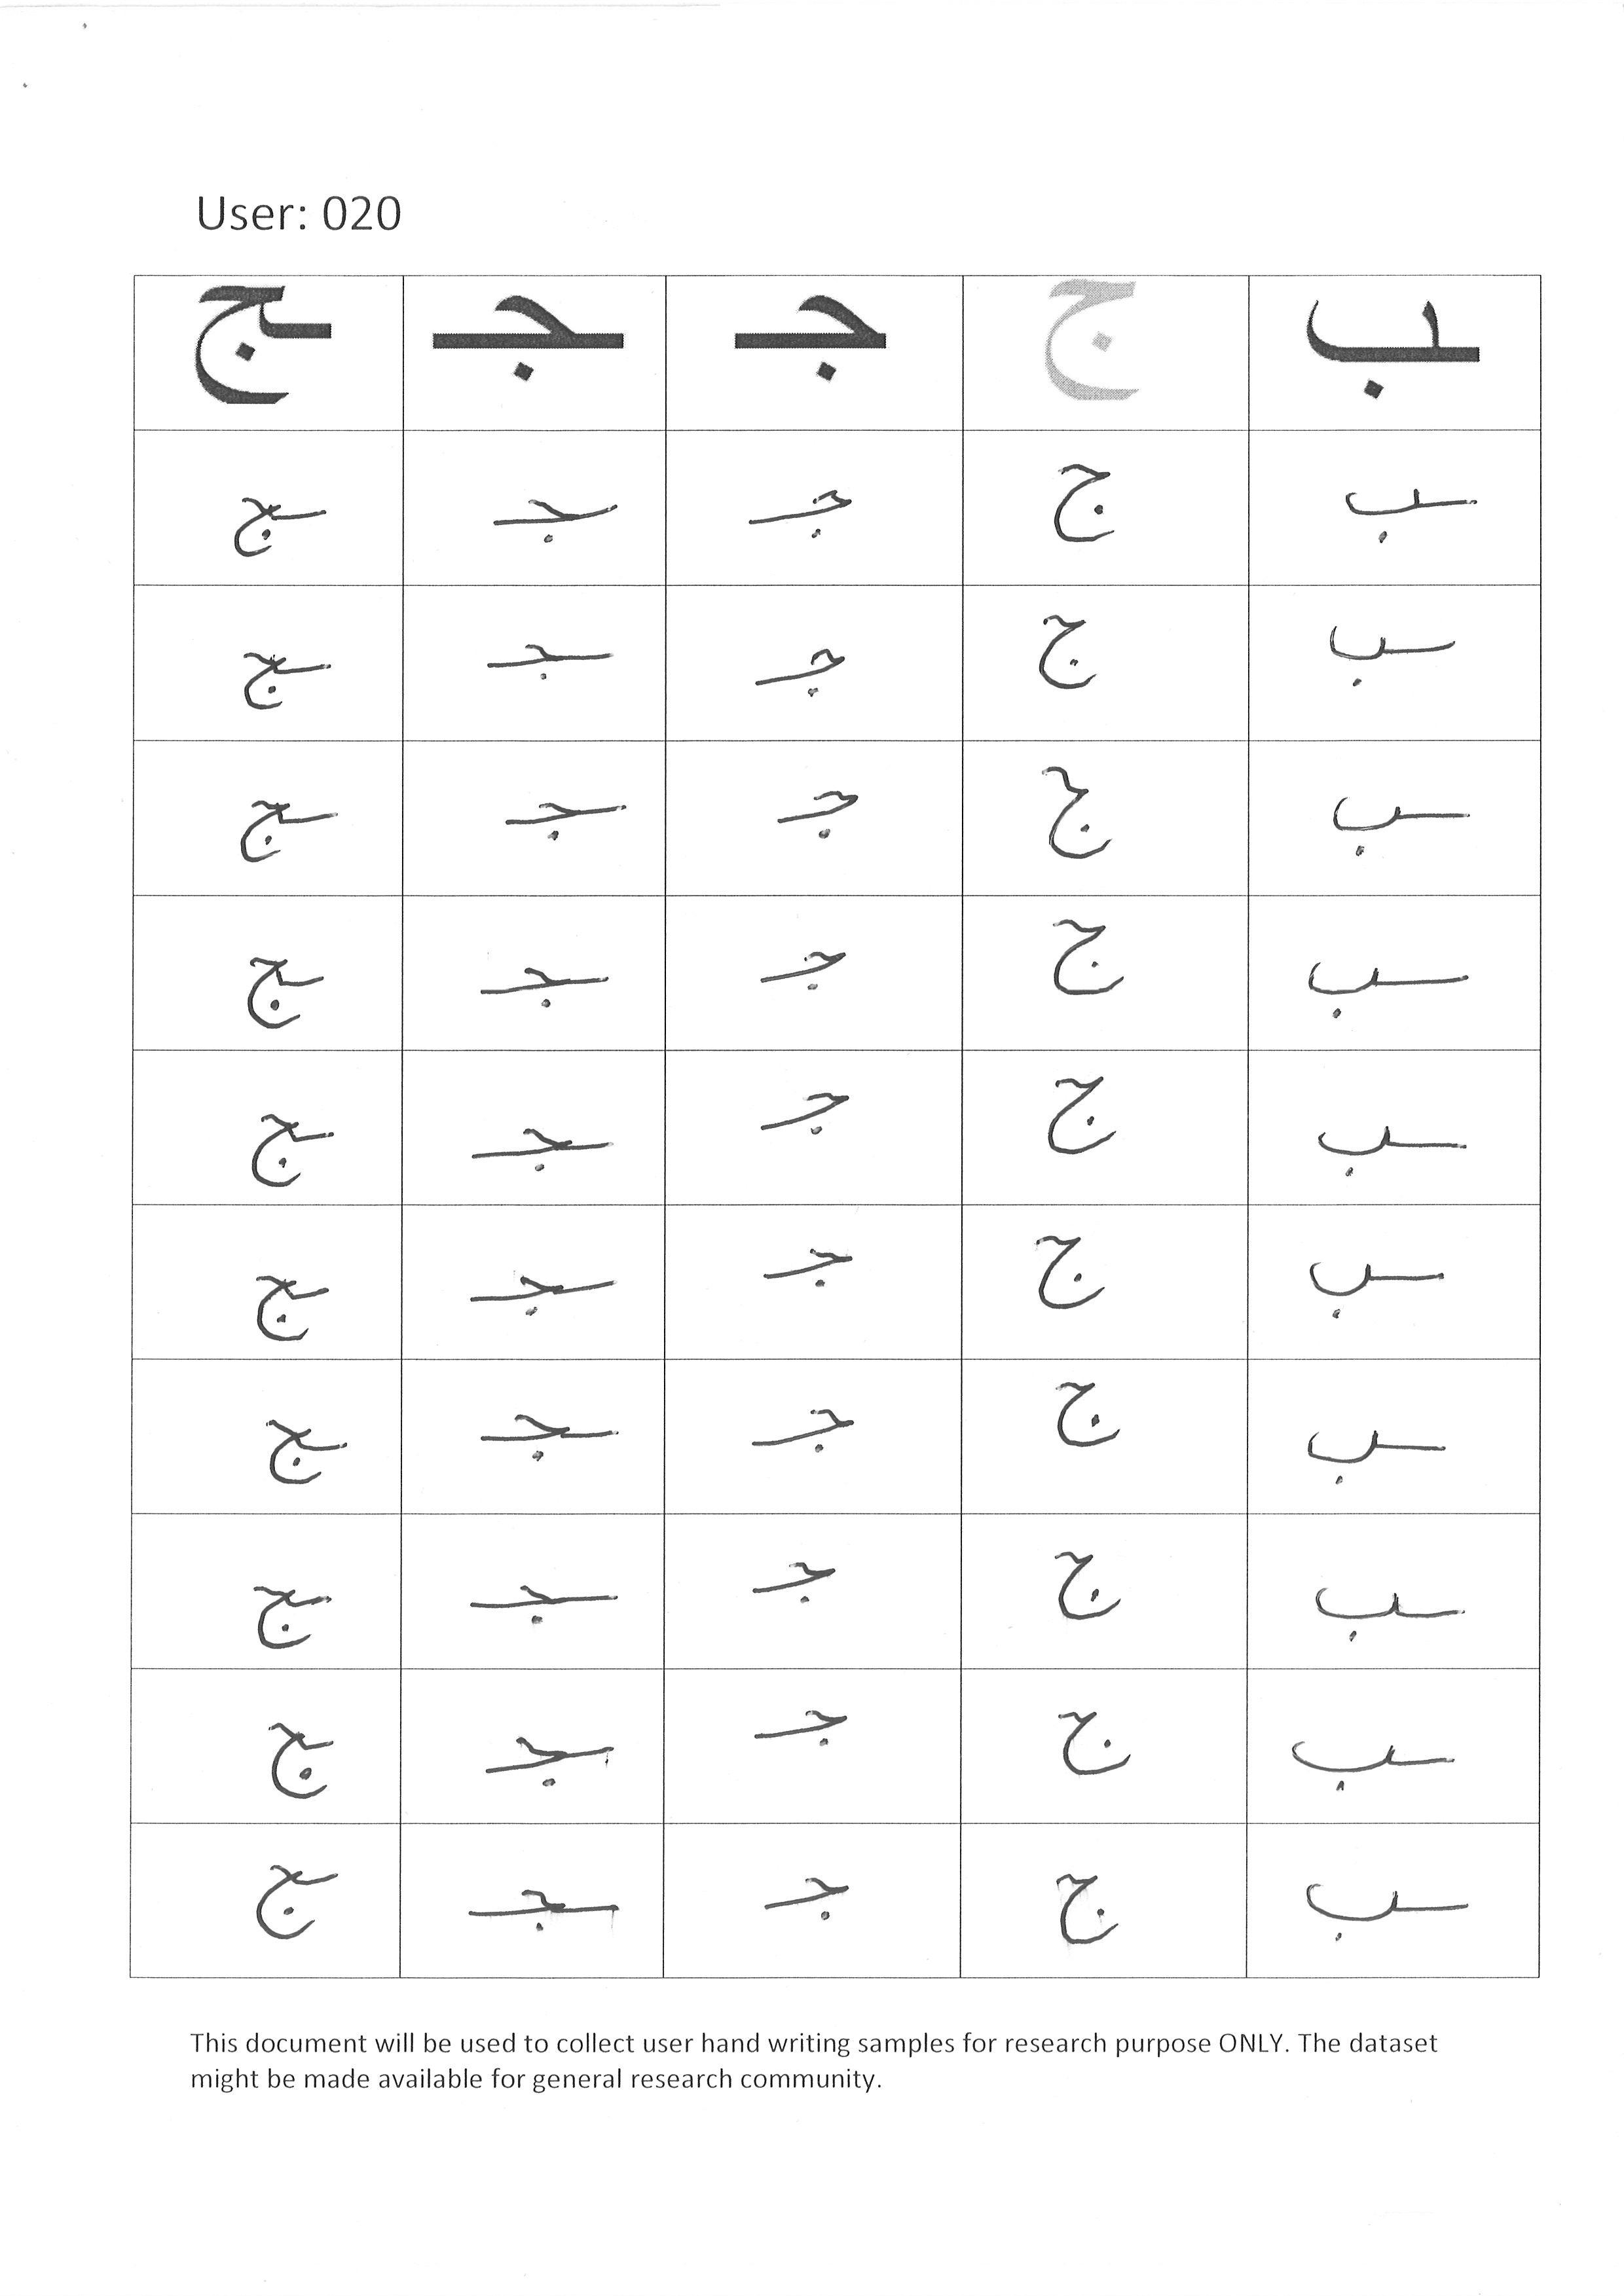 User: 020
ـب ج جـ ـجـ ـج
ـب ج جـ ـجـ ـج
ـب ج جـ ـجـ ـج
ـب ج جـ ـجـ ـج
ـب ج جـ ـجـ ـج
ـب ج جـ ـجـ ـج
ـب ج جـ ـجـ ـج
ـب ج جـ ـجـ ـج
ـب ج جـ ـجـ ـج
ـب ج جـ ـجـ ـج
ـب ج جـ ـجـ ـج
This document will be used to collect user hand writing samples for research purpose ONLY. The dataset
might be made available for general research community.